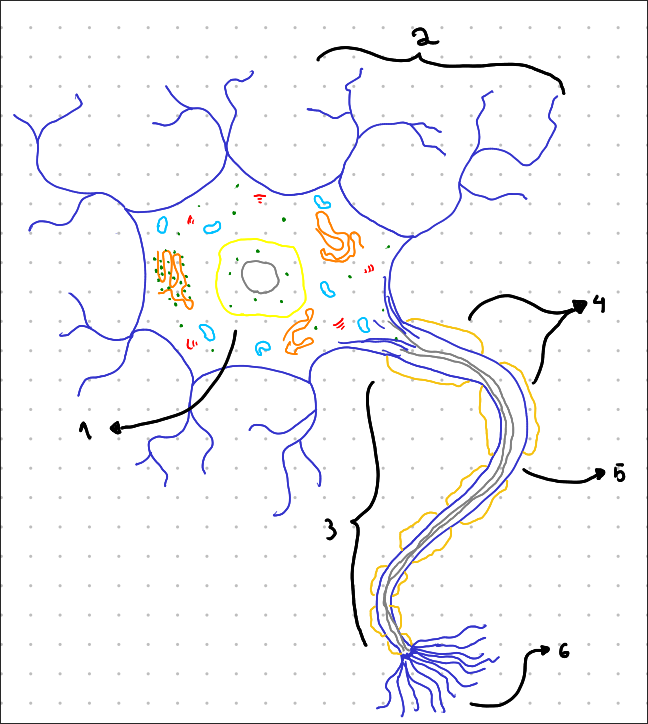 2
4
1
5
3
6